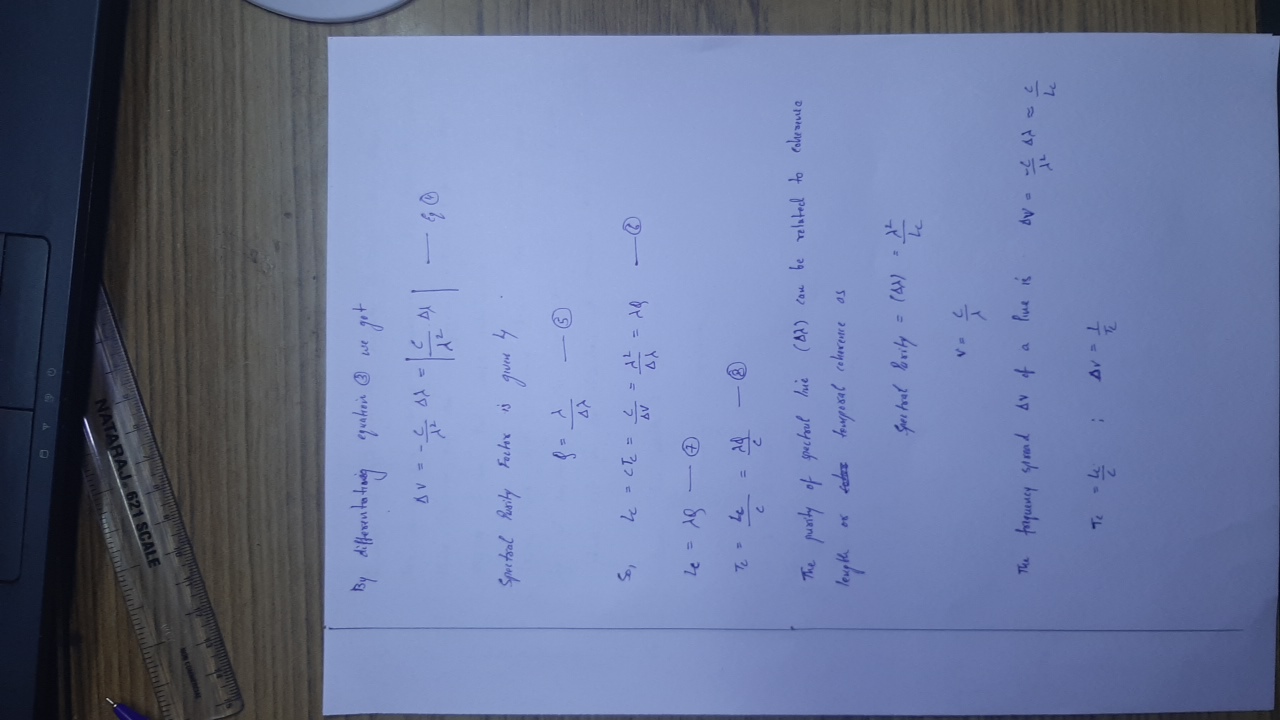 NATARAJ 621 SCALE
By differentiating equation ③ we get
Δν = -c/λ² Δλ = |c/λ² Δλ| — Eq ④
Spectral Purity Factor is given by
Q = λ/Δλ — ⑤
So, Lc = cτc = c/Δν = λ²/Δλ = λQ — ⑥
Lc = λQ — ⑦
τc = Lc/c = λQ/c — ⑧
The purity of spectral line (Δλ) can be related to coherence
length or temporal coherence as
Spectral Purity = (Δλ) = λ²/Lc
ν = c/λ
The frequency spread Δν of a line is Δν = -c/λ² Δλ ≈ c/Lc
τc = Lc/c ; Δν = 1/τc